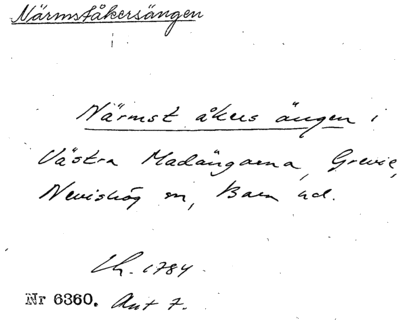 Närmståkersängen
Närmst åkers ängen i
Västra Madängarna, Grevie,
Nevishög sn, Bara hd.
Lh. 1784.
Nr 6360. Akt 7.